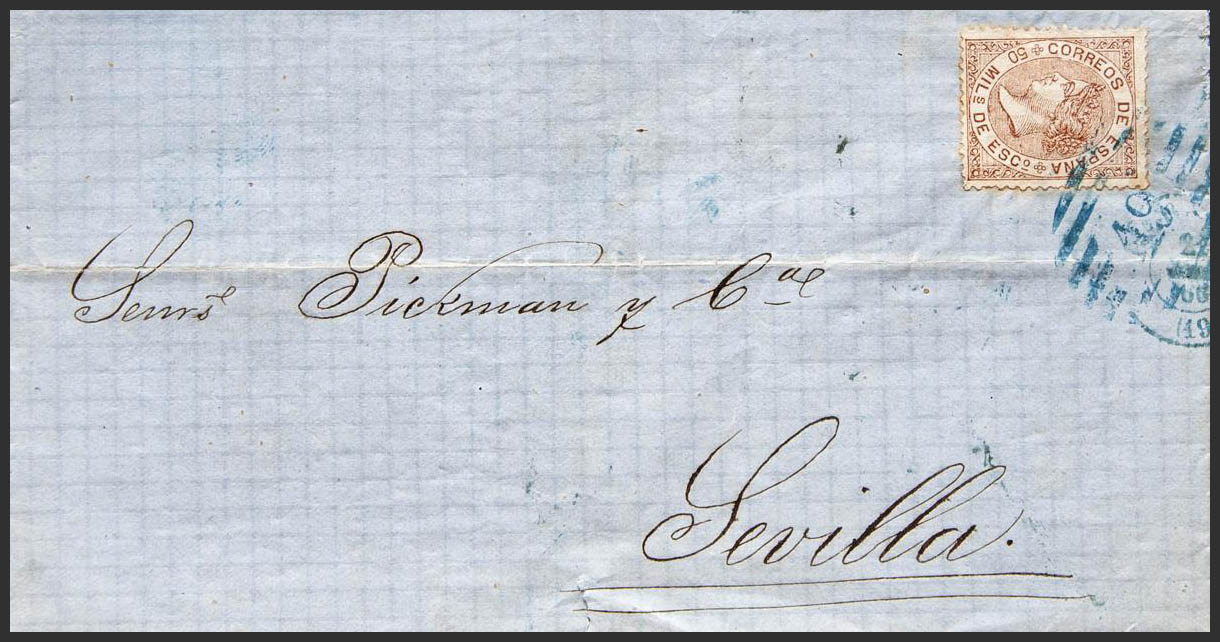 CORREOS DE ESPAÑA
50 MILS DE ESCO
Senrs Pickman y Cª
Sevilla.
(19